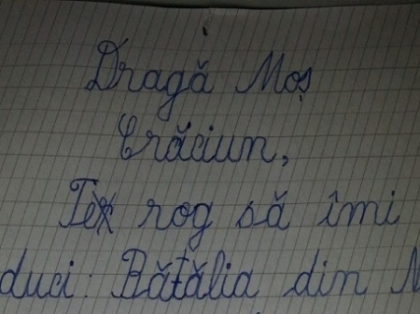 Dragă Moș
Crăciun,
Te rog să îmi
duci: Bătălia din